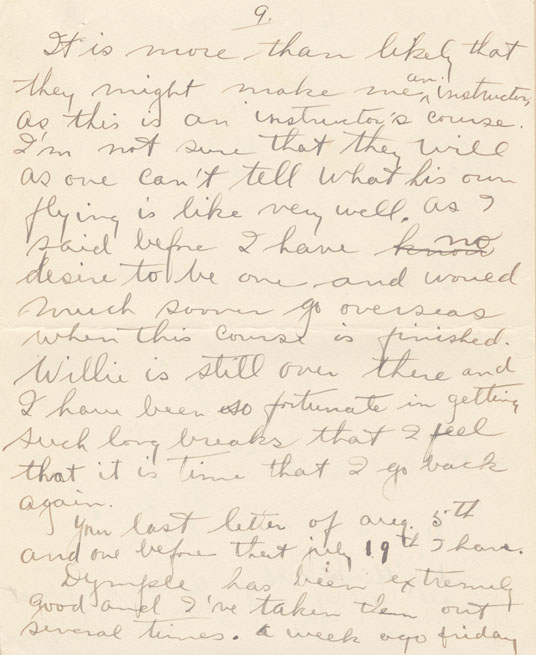 9.
It is more than likely that
they might make me an instructor,
as this is an instructor's course.
I'm not sure that they will
as one can't tell what his own
flying is like very well. As I
said before I have know no
desire to be one and would
much sooner go overseas
when this course is finished.
Willie is still over there and
I have been so fortunate in getting
such long breaks that I feel
that it is time that I go back
again.
Your last letter of aug. 5th
and one before that july 19th I have.
Dymple has been extremely
good and I've taken them out
several times. a week ago friday